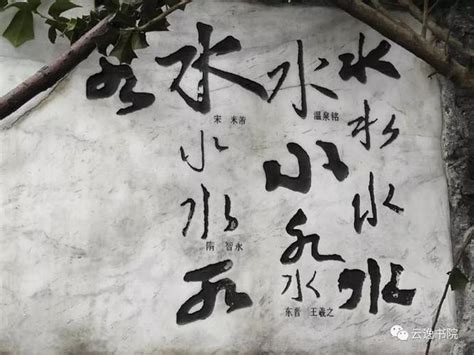 水水水水
水
温泉铭
水水水
东晋 王羲之
水
宋 米芾
水水
隋 智永
水
水
云逸书院